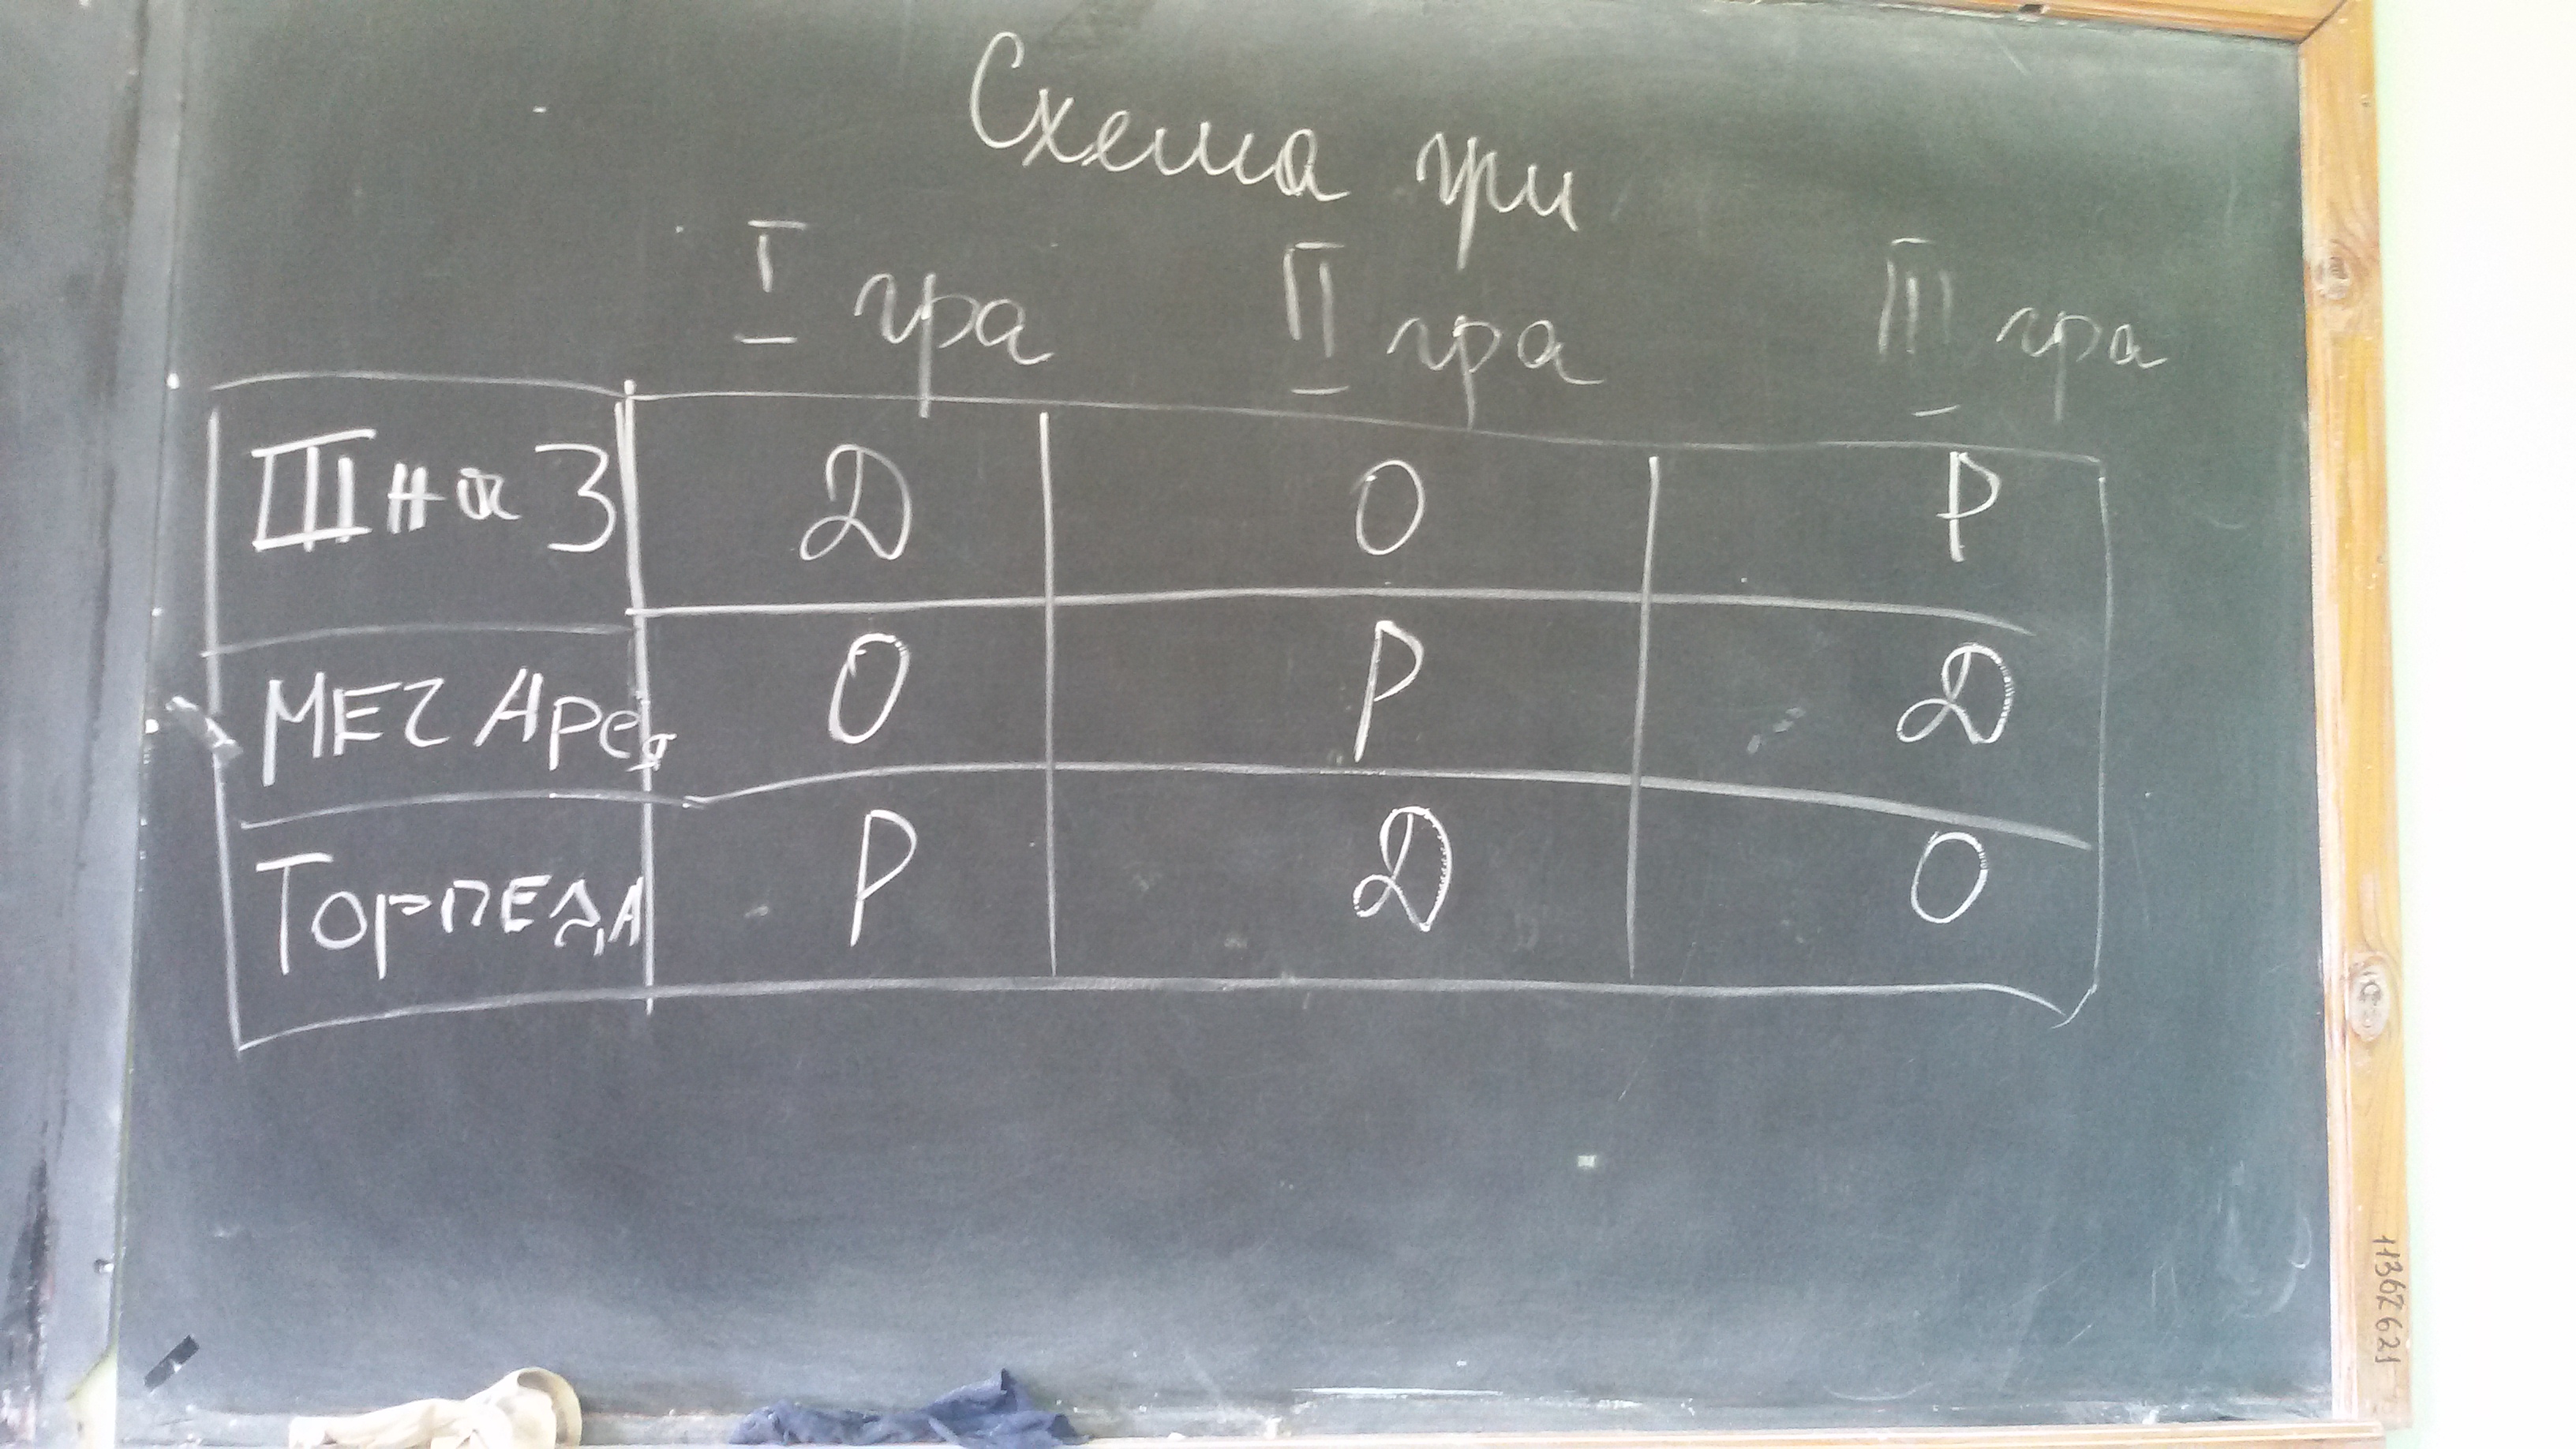 Схема гри
I гра II гра III гра
III на 3 Д О Р
МЕЧ Арея О Р Д
ТОРПЕДА Р Д О
11367621